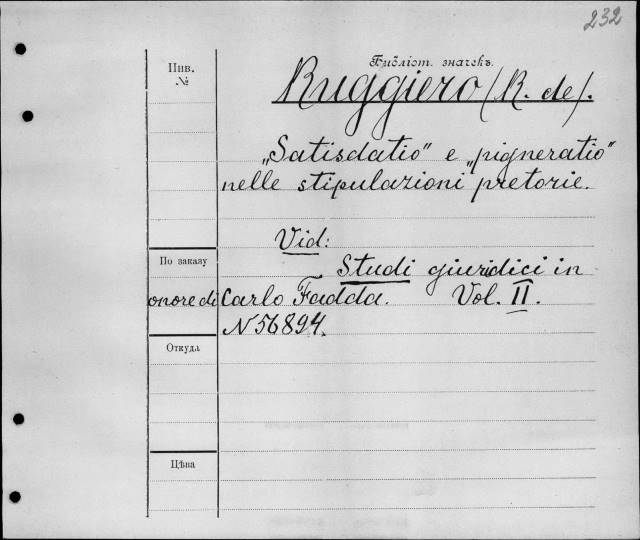 232
Инв.
№
Библіот. значекъ.
Ruggiero (R. de).
„Satisdatio" e „pigneratio"
nelle stipulazioni pretorie.
Vid:
По заказу
Studi giuridici in
onore di Carlo Fadda. Vol. II.
N 56894.
Откуда
Цѣна